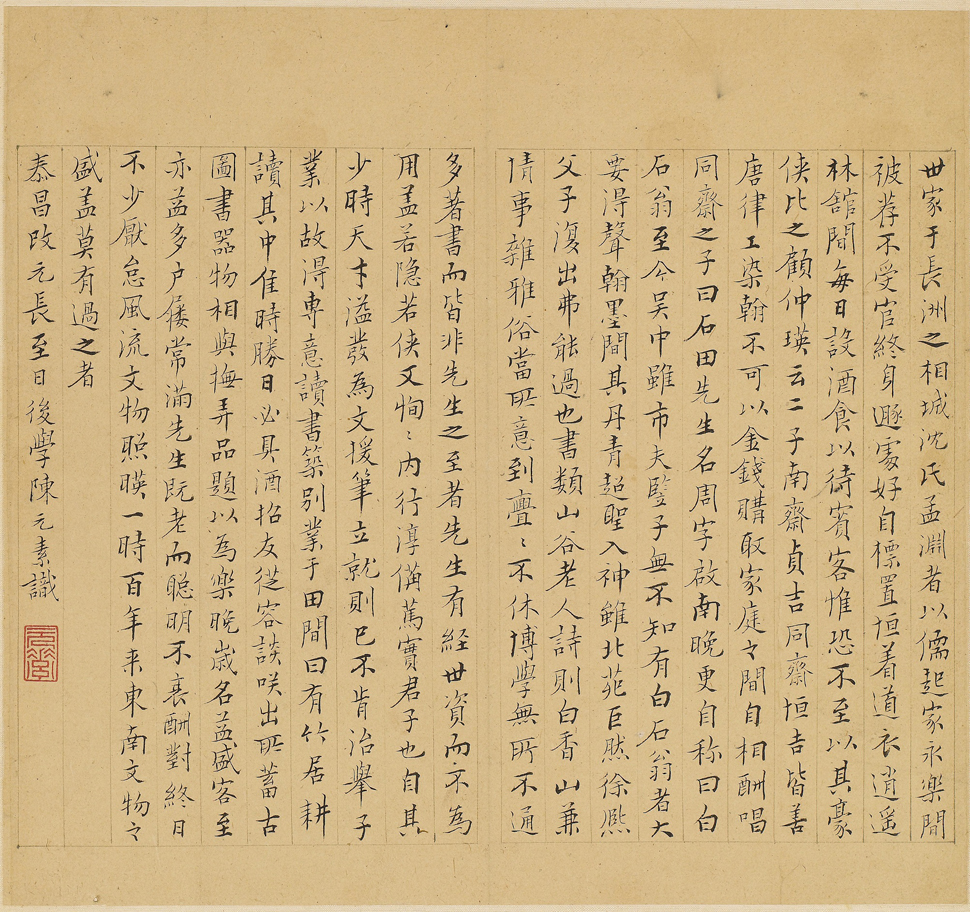 世家于長洲之相城沈氏孟淵者以儒起家永樂間
被荐不受官終身遯處好自標置恒着道衣逍遥
林舘間每日設酒食以待賓客惟恐不至以其豪
侠比之顧仲瑛云二子南齋貞吉同齋恒吉皆善
唐律工染翰不可以金錢購取家庭之間自相酬唱
同齋之子曰石田先生名周字啟南晚更自称曰白
石翁至今吴中雖市夫豎子無不知有白石翁者大
要淂聲翰墨間其丹青超聖入神雖北苑巨然徐熙
父子復出弗能過也書類山谷老人詩則白香山兼
情事雜雅俗當所意到亹〻不休博學無所不通
多著書而皆非先生之至者先生有経世資而不為
用盖若隐若侠又恂〻内行淳備篤實君子也自其
少時天才溢發為文援筆立就則已不肯治舉子
業以故淂專意讀書築别業于田間曰有竹居耕
讀其中佳時勝日必具酒招友従容談咲出所蓄古
圖書器物相與撫弄品題以為樂晚嵗名益盛客至
亦益多户屨常滿先生既老而聪明不衰酬對終日
不少厭怠風流文物照暎一時百年来東南文物之
盛盖莫有過之者
泰昌改元長至日後學陳元素識